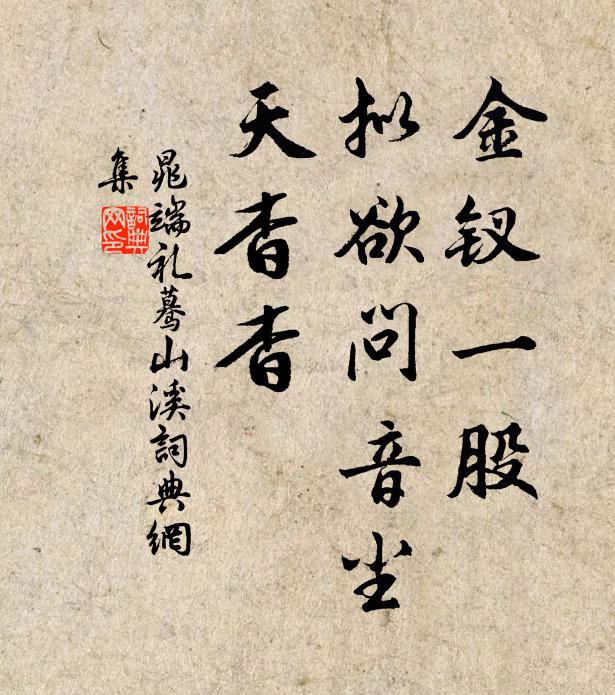 金钗一股
拟欲问音尘
天杳杳
晁端礼驀山溪詞典網
集
詞典
网印